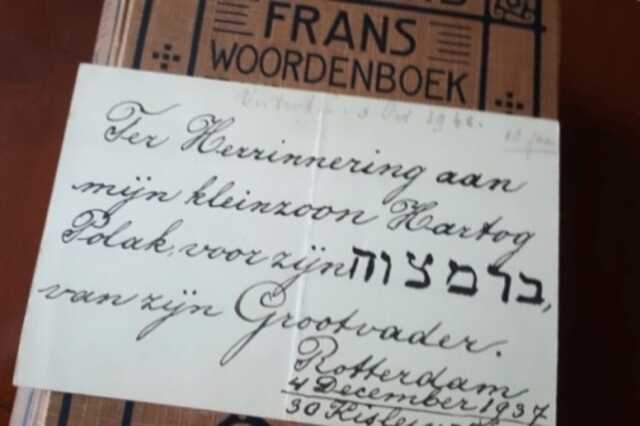 FRANS
WOORDENBOEK
Ter Herrinnering aan
mijn kleinzoon Hartog
Polak, voor zijn ברמצוה,
van zijn Grootvader.
Rotterdam
4 December 1937
30